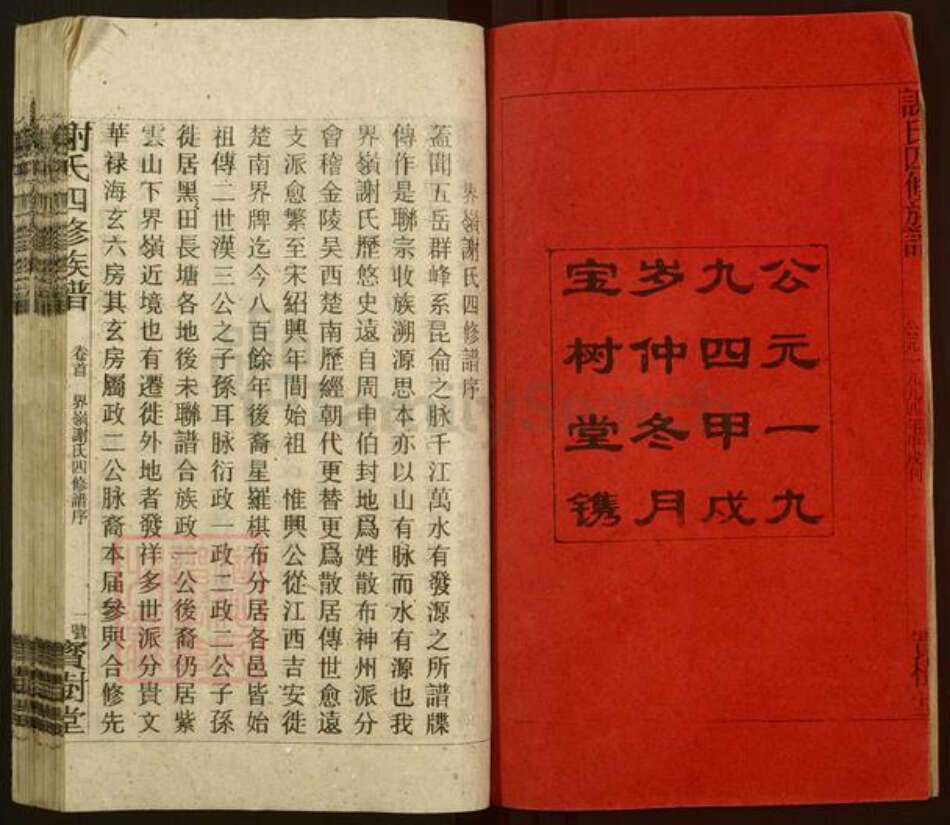 謝氏四修族譜
公元一九
九四甲戌
岁仲冬月
宝树堂镌
界嶺謝氏四修譜序
蓋聞五岳群峰系昆侖之脉千江萬水有發源之所譜牒
傳作是聯宗收族溯源思本亦以山有脉而水有源也我
界嶺謝氏歷悠史遠自周申伯封地爲姓散布神州派分
會稽金陵吴西楚南歷經朝代更替更爲散居傳世愈遠
支派愈繁至宋紹興年間始祖 惟興公從江西吉安徙
楚南界牌迄今八百餘年後裔星羅棋布分居各邑皆始
祖傳二世漢三公之子孫耳脉衍政一政二政二公子孫
徙居黑田長塘各地後未聯譜合族政一公後裔仍居紫
雲山下界嶺近境也有遷徙外地者發祥多世派分貴文
華禄海玄六房其玄房屬政二公脉裔本届參與合修先
謝氏四修族譜 卷首 界嶺謝氏四修譜序 一號 寶樹堂
FamilySearch